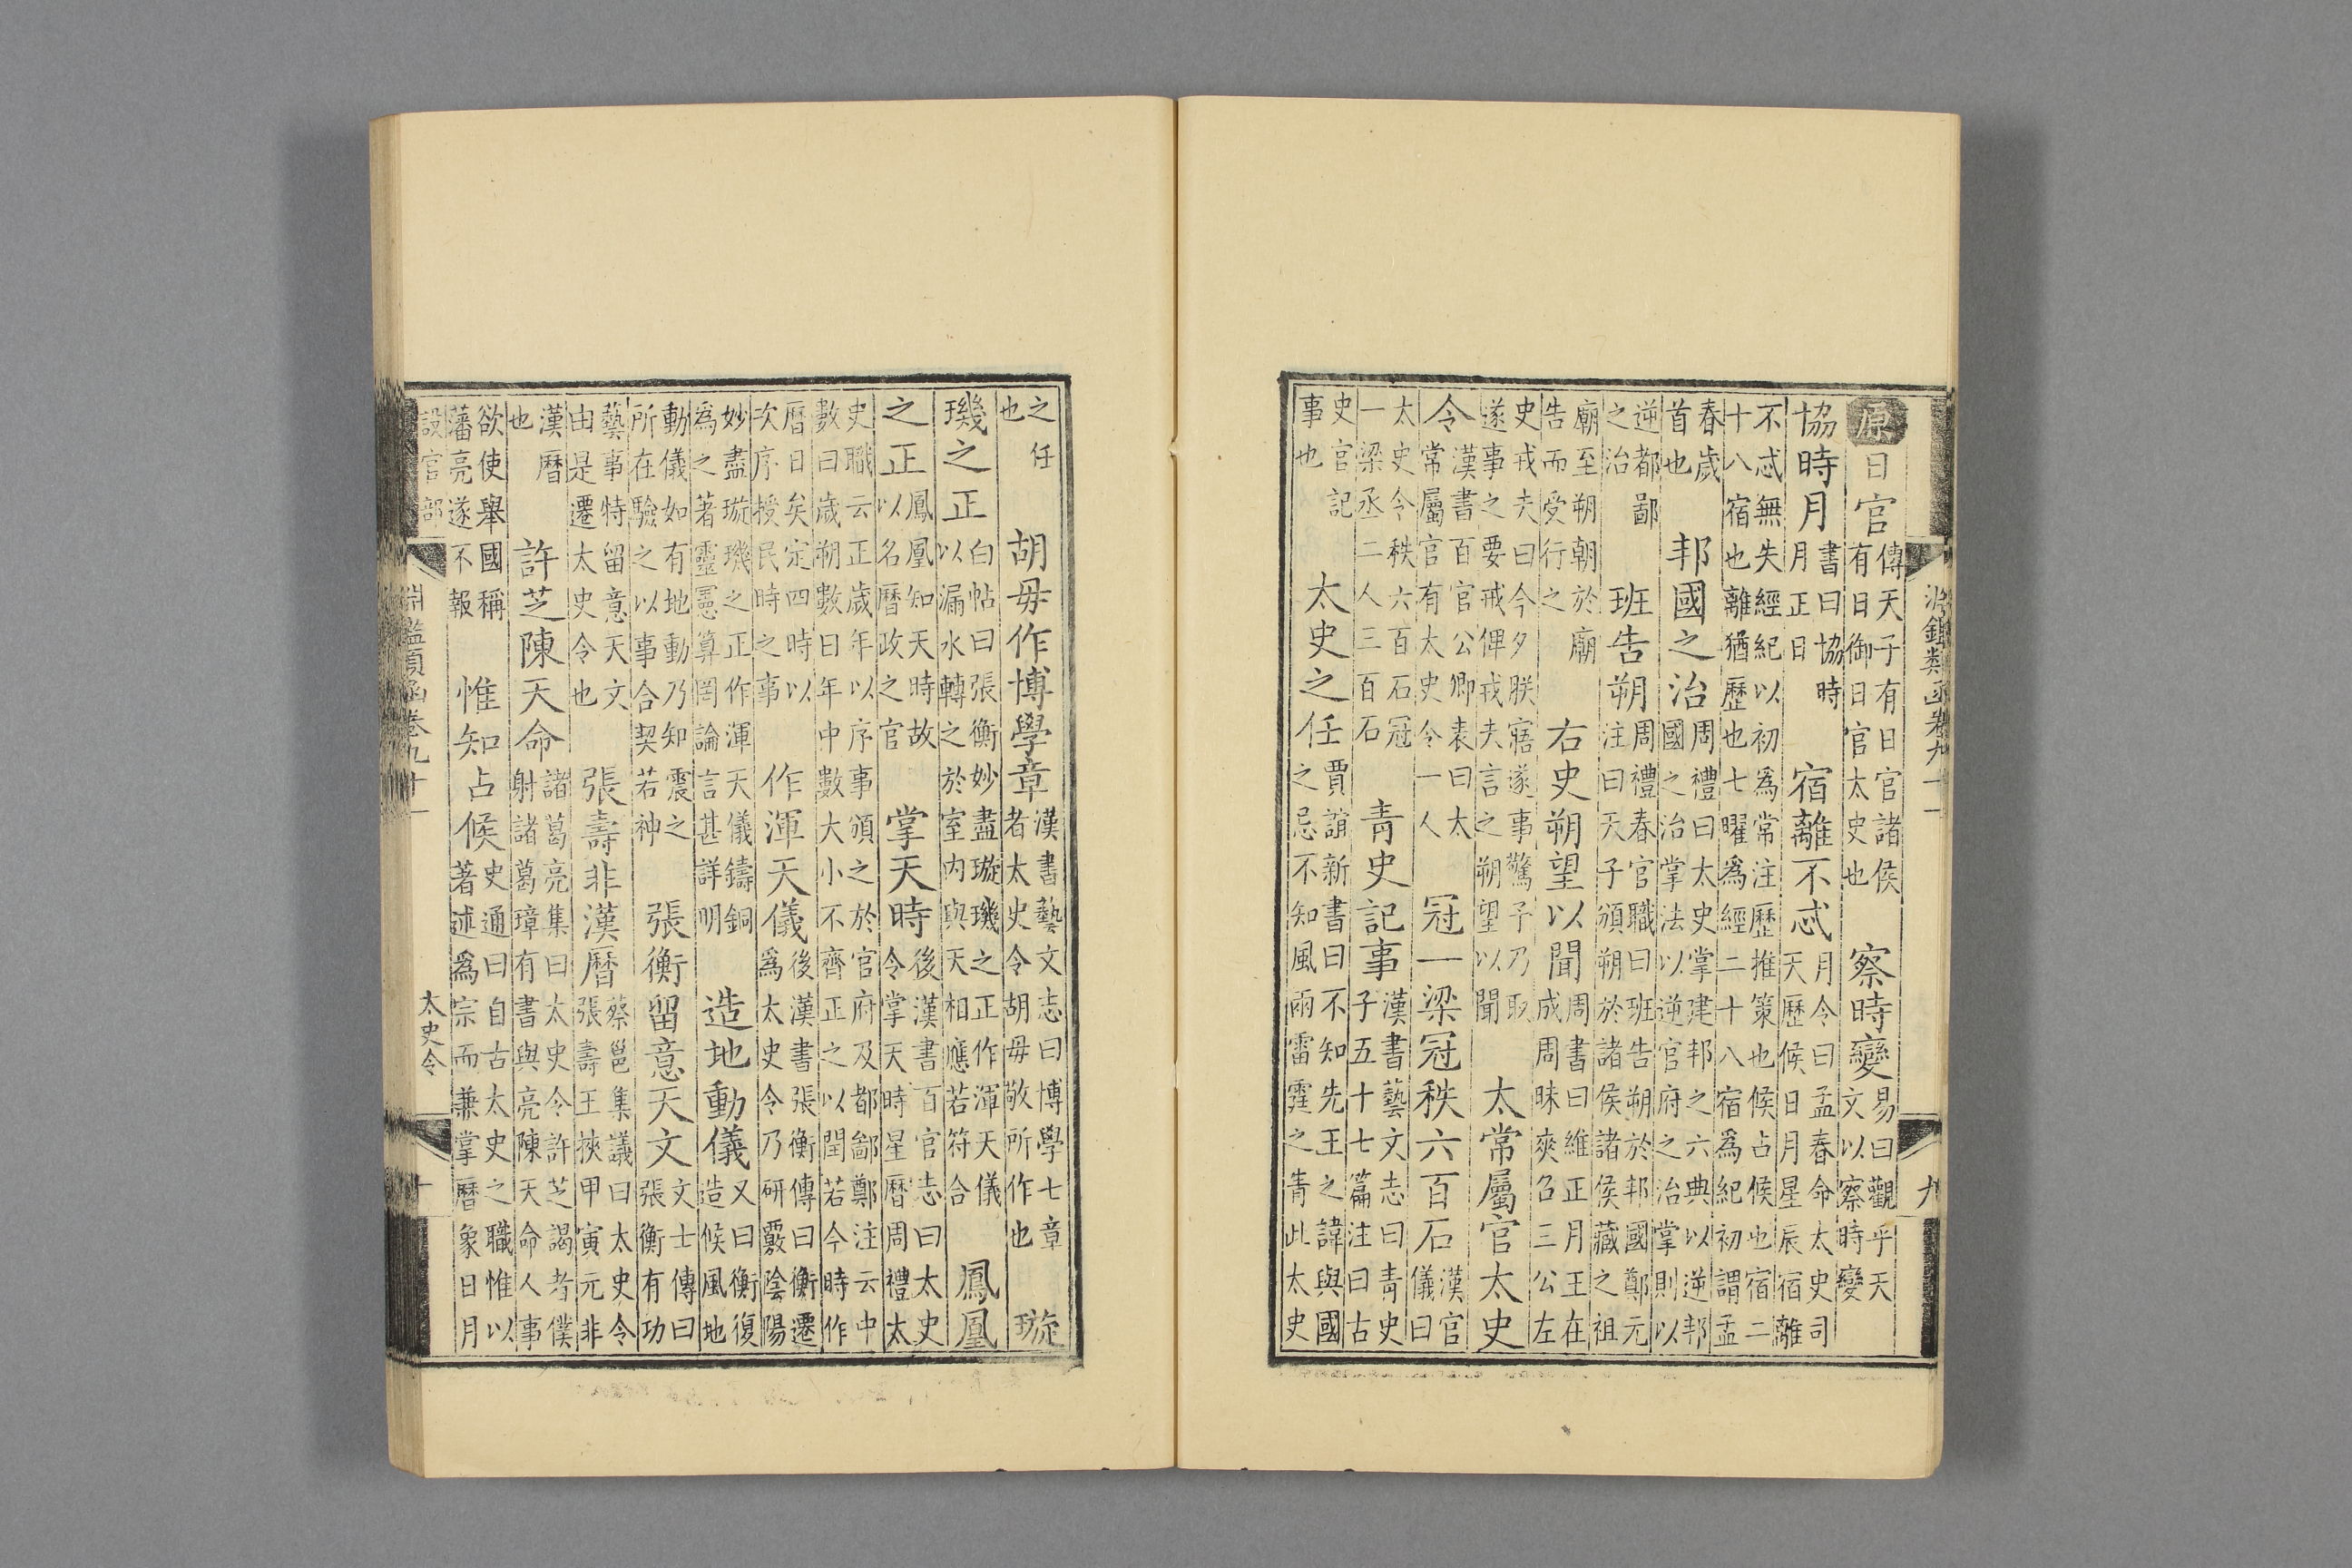 淵鑑類函卷九十一 九
原日官傳天子有日官諸侯有日御日官太史也 察時變易曰觀乎天文以察時變
協時月書曰協時月正日 宿離不忒月令曰孟春命太史司天歷候日月星辰宿離
不忒無失經紀以初爲常注歷推策也候占候也宿二十八宿也離猶歷也七曜爲經二十八宿爲紀初謂孟
春歲首也 邦國之治周禮曰太史掌建邦之六典以逆邦國之治掌法以逆官府之治掌則以
逆都鄙之治 班告朔周禮春官職曰班告朔於邦國鄭元注曰天子頒朔於諸侯諸侯藏之祖
廟至朔朝於廟告而受行之 右史朔望以聞周書曰維正月王在成周昧爽召三公左
史戎夫曰今夕朕寤遂事驚予乃取遂事之要戒俾戎夫言之朔望以聞 太常屬官太史
令漢書百官公卿表曰太常屬官有太史令一人 冠一梁冠秩六百石漢官儀曰
太史令秩六百石冠一梁丞二人三百石 青史記事漢書藝文志曰青史子五十七篇注曰古
史官記事也 太史之任賈誼新書曰不知先王之諱與國之忌不知風雨雷霆之眚此太史
之任也 胡毋作博學章漢書藝文志曰博學七章者太史令胡毋敬所作也 璇
璣之正白帖曰張衡妙盡璇璣之正作渾天儀以漏水轉之於室内與天相應若符合 鳳凰
之正鳳凰知天時故以名曆政之官 掌天時後漢書百官志曰太史令掌天時星曆周禮太
史職云正歲年以序事頒之於官府及都鄙鄭注云中數曰歲朔數曰年中數大小不齊正之以閏若今時作
曆日矣定四時以次序授民時之事 作渾天儀後漢書張衡傳曰衡遷爲太史令乃研覈陰陽
妙盡璇璣之正作渾天儀鑄銅爲之著靈憲算罔論言甚詳明 造地動儀又曰衡復造候風地
動儀如有地動乃知震之所在驗之以事合契若神 張衡留意天文文士傳曰張衡有功
藝事特留意天文由是遷太史令也 張壽非漢曆蔡邕集議曰太史令張壽王挾甲寅元非
漢曆也 許芝陳天命諸葛亮集曰太史令許芝謁者僕射諸葛璋有書與亮陳天命人事
欲使舉國稱藩亮遂不報 惟知占候史通曰自古太史之職惟以著述爲宗而兼掌曆象日月
設官部 淵鑑類函卷九十一 太史令 十